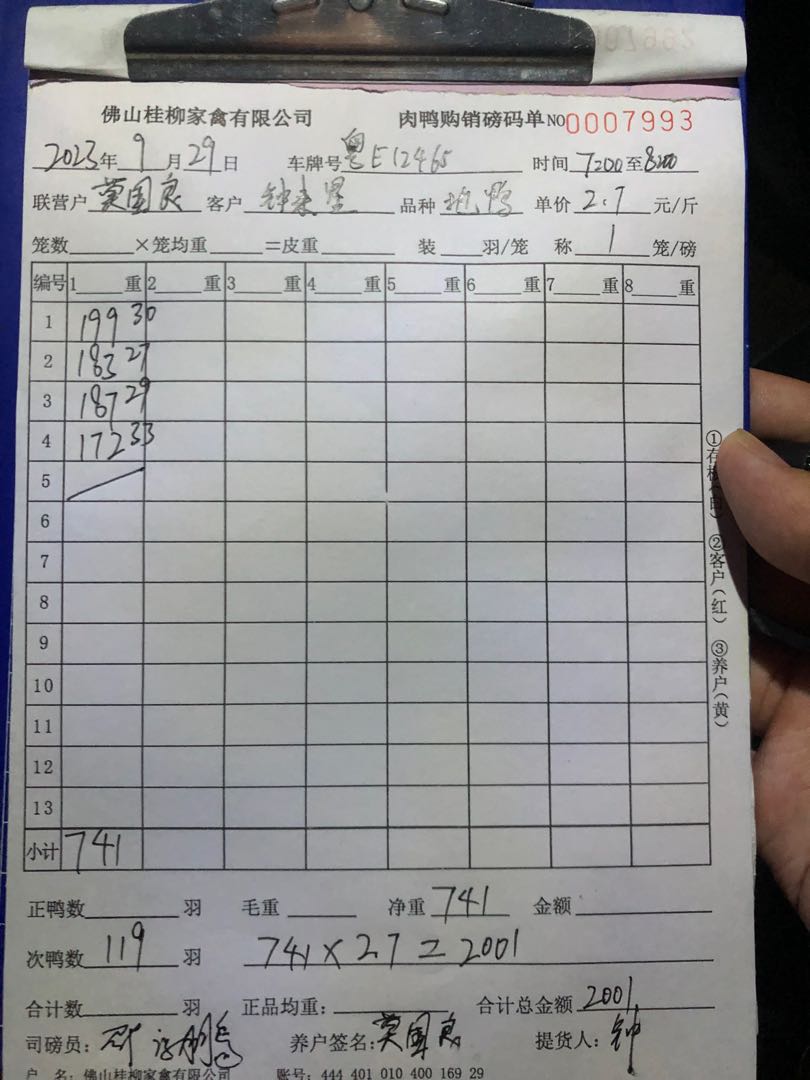 佛山桂柳家禽有限公司 肉鸭购销磅码单 NO 0007993
2023年 9 月 29 日 车牌号 粤E12465 时间 7:00至8:00
联营户 莫国良 客户 钟来 品种 地鸭 单价 2.7 元/斤
笼数______×笼均重_____=皮重______ 装____羽/笼 称 1 笼/磅
编号 1____重 2____重 3____重 4____重 5____重 6____重 7____重 8____重
1 199 30
2 183 27
3 187 29
4 172 33
5
6
7
8
9
10
11
12
13
小计 741
正鸭数________羽 毛重______ 净重 741 金额________
次鸭数 119 羽 741×2.7=2001
合计数________羽 正品均重:________ 合计总金额 2001
司磅员: 养户签名: 莫国良 提货人: 钟
户 名: 佛山桂柳家禽有限公司 账号: 444 401 010 400 169 29
①存根(白) ②客户(红) ③养户(黄)